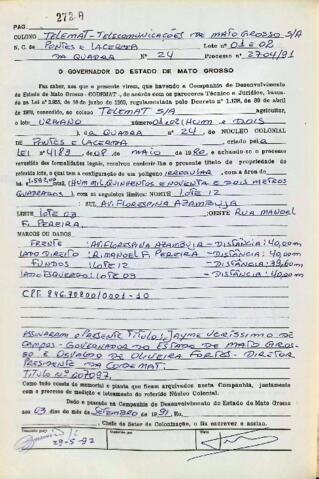 PAG. 272 A
COLONO TELEMAT-TELECOMUNICAÇÕES DE MATO GROSSO S/A
N. C. de PONTES E LACERDA Lote nº 01 e 02
DA QUADRA Nº 24 Processo nº 2704/91
O GOVERNADOR DO ESTADO DE MATO GROSSO
Faz saber, aos que o presente virem, que havendo a Companhia de Desenvolvimento
do Estado de Mato Grosso - CODEMAT, de acordo com os pareceres Técnico e Jurídico, basea-
da na Lei nº
de 1978, concedido, ao colono TELEMAT S/A Agricultor,
o lote URBANO número 01 e 02 (HUM E DOIS
) da QUADRA nº 24, do NÚCLEO COLONIAL
de PONTES E LACERDA criado pela
LEI Nº 4189, de 08, de MAIO de 1980, e achando-se o processo
revestido das formalidades legais, resolveu conferir-lhe o presente título de propriedade do
referido lote, o qual tem a configuração de um polígono IRREGULAR, com a área de
(HUM MIL, QUINHENTOS E NOVENTA E DOIS METROS
QUADRADOS) com os seguintes limites: NORTE LOTE 12
SUL AV. FLORESPINA AZAMBUJA
LESTE LOTE 03 OESTE RUA MANOEL
F. PEREIRA.
MARCOS OU DADOS
FRENTE : AV. FLORESPINA AZAMBUJA - DISTÂNCIA: 40,00m
LADO DIREITO : R. MANOEL F. PEREIRA - DISTÂNCIA: 40,00m
FUNDOS : LOTE 12 - DISTÂNCIA: 39,60m
LADO ESQUERDO: LOTE 03 - DISTÂNCIA: 40,00m
ASSINARAM O PRESENTE TÍTULO: JAYME VERISSIMO DE
CAMPOS - GOVERNADOR DO ESTADO DE MATO GROS-
SO E OSVALDO DE OLIVEIRA FORTES - DIRETOR
PRESIDENTE DA CODEMAT.
TÍTULO Nº 007097.
Como tudo consta do memorial e planta que ficam arquivados nesta Companhia, juntamente
com o processo de medição e loteamento do referido Núcleo Colonial.
Dado e passado na Companhia de Desenvolvimento do Estado de Mato Grosso
aos 03 dias do mês de SETEMBRO de 1991. Eu,
, Chefe do Setor de Colonização, o fiz escrever e assino.
29-5-92